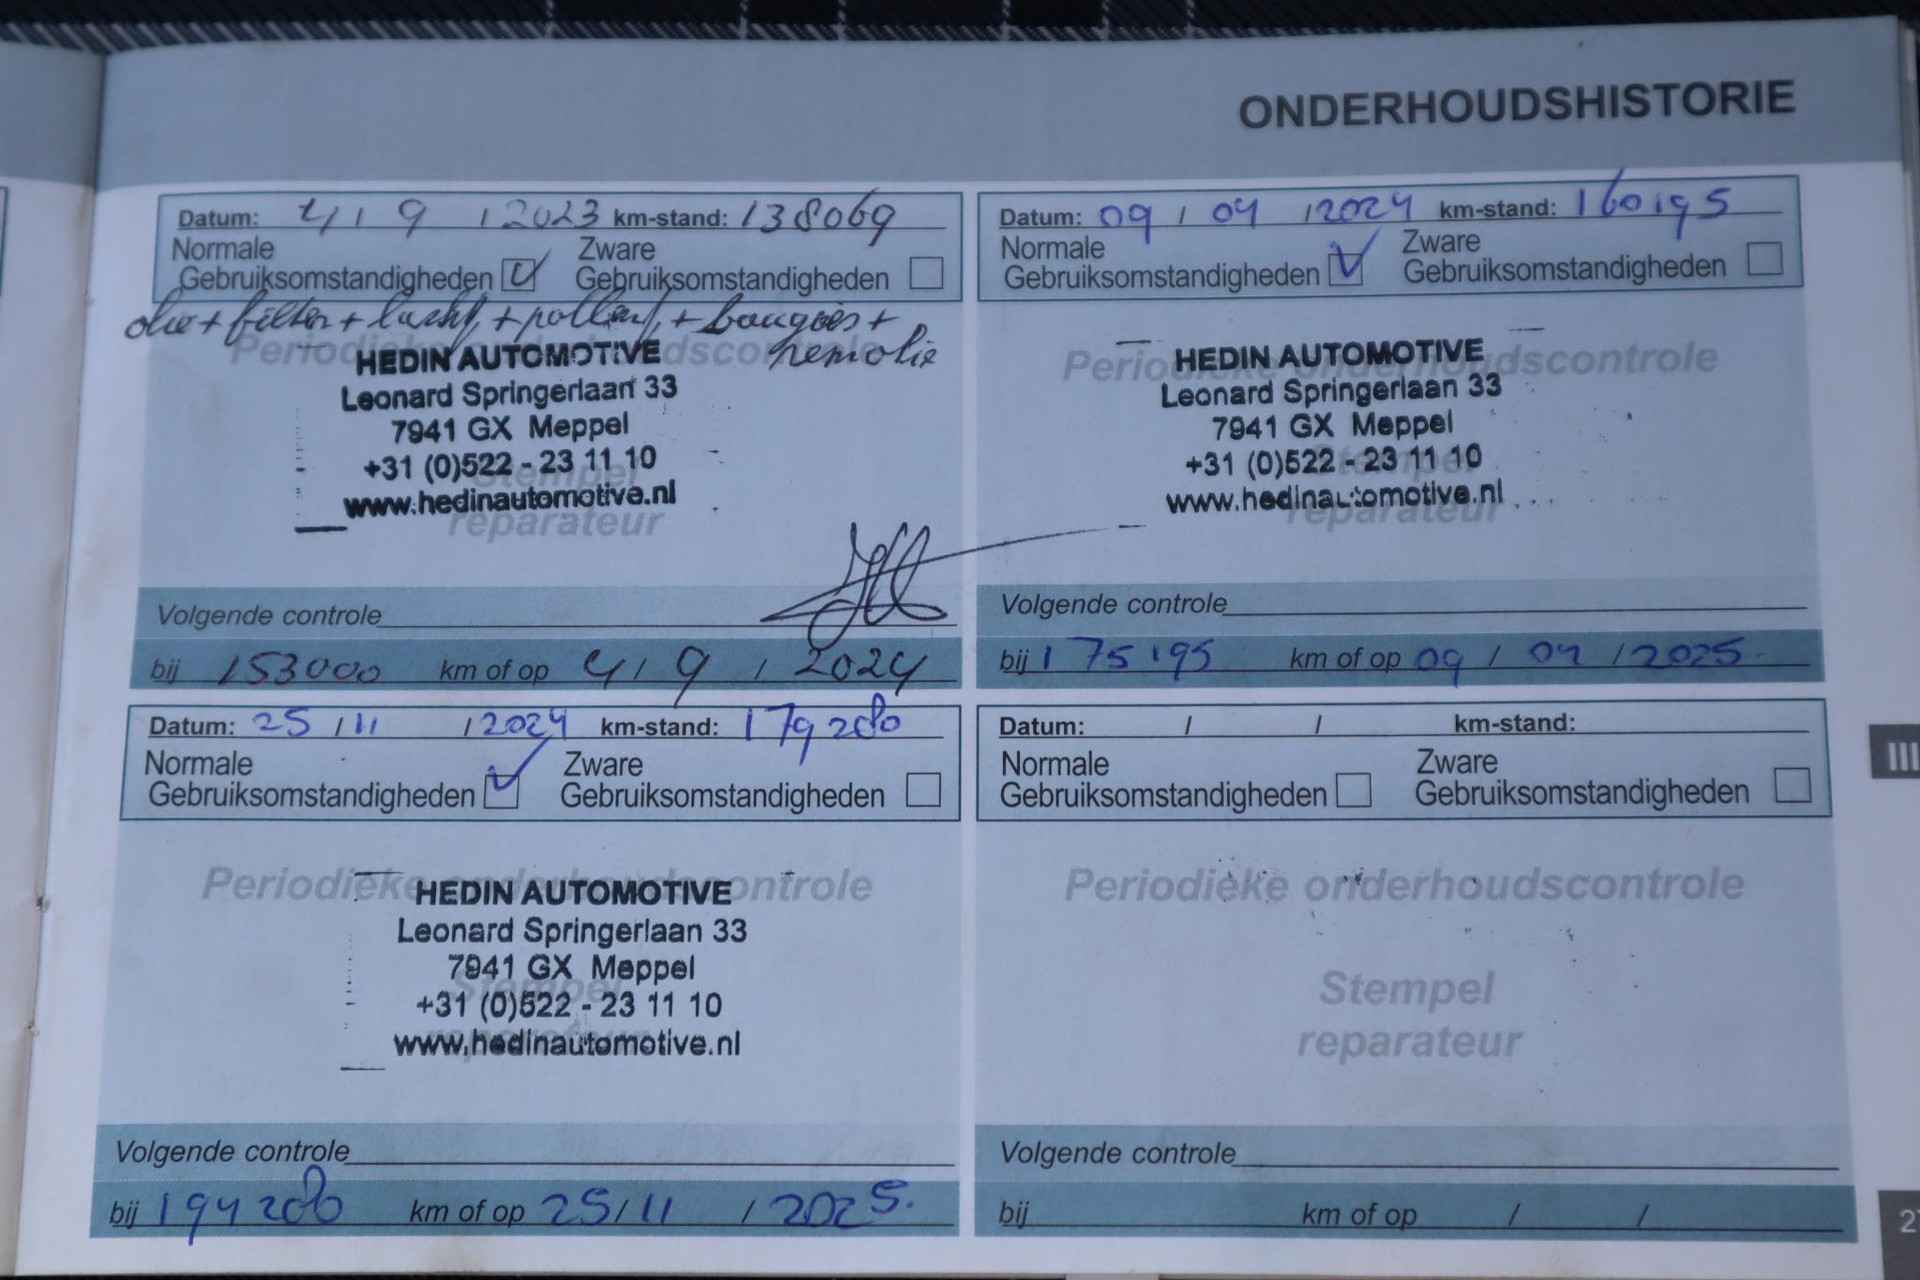 ONDERHOUDSHISTORIE
Datum: 4 / 9 / 2023 km-stand: 138069
Normale
Gebruiksomstandigheden
Zware
Gebruiksomstandigheden
olie + filter + lucht, + pollenf, + bougies +
remolie
Periodieke onderhoudscontrole
HEDIN AUTOMOTIVE
Leonard Springerlaan 33
7941 GX Meppel
+31 (0)522 - 23 11 10
www.hedinautomotive.nl
Stempel
reparateur
Volgende controle
bij 153000 km of op 4 / 9 / 2024
Datum: 09 / 04 / 2024 km-stand: 160195
Normale
Gebruiksomstandigheden
Zware
Gebruiksomstandigheden
Periodieke onderhoudscontrole
HEDIN AUTOMOTIVE
Leonard Springerlaan 33
7941 GX Meppel
+31 (0)522 - 23 11 10
www.hedinautomotive.nl
Stempel
reparateur
Volgende controle
bij 175195 km of op 09 / 04 / 2025
Datum: 25 / 11 / 2024 km-stand: 179280
Normale
Gebruiksomstandigheden
Zware
Gebruiksomstandigheden
Periodieke onderhoudscontrole
HEDIN AUTOMOTIVE
Leonard Springerlaan 33
7941 GX Meppel
+31 (0)522 - 23 11 10
www.hedinautomotive.nl
Stempel
reparateur
Volgende controle
bij 194280 km of op 25 / 11 / 2025.
Datum: / / km-stand:
Normale
Gebruiksomstandigheden
Zware
Gebruiksomstandigheden
Periodieke onderhoudscontrole
Stempel
reparateur
Volgende controle
bij km of op / /
III